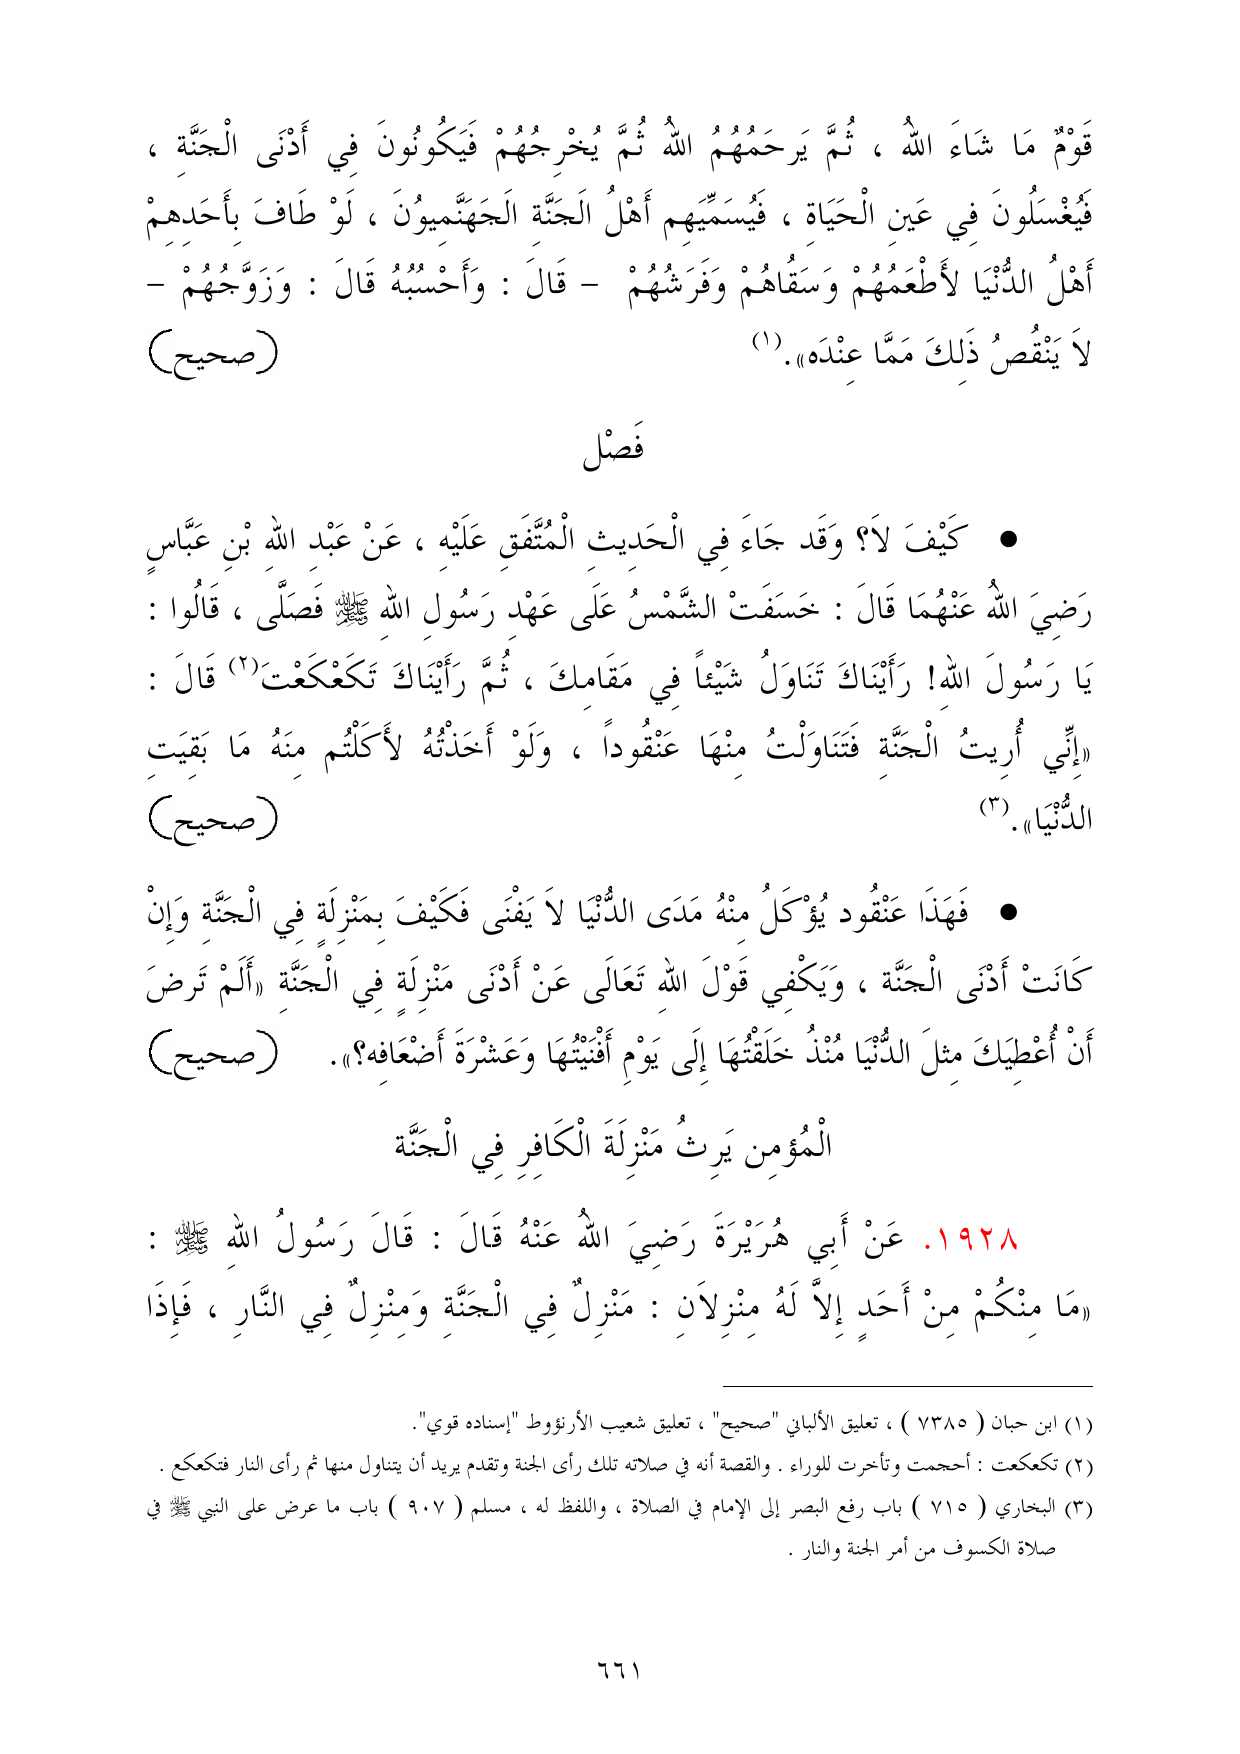 قَوْمٌ مَا شَاءَ اللهُ ، ثُمَّ يَرحَمُهُمُ اللهُ ثُمَّ يُخْرِجُهُمْ فَيَكُونُونَ فِي أَدْنَى الْجَنَّةِ ،
فَيُغْسَلُونَ فِي عَينِ الْحَيَاةِ ، فَيُسَمِّيَهِم أَهْلُ الَجَنَّةِ الَجَهَنَّمِيوُنَ ، لَوْ طَافَ بِأَحَدِهِمْ
أَهْلُ الدُّنْيَا لأَطْعَمُهُمْ وَسَقُاهُمْ وَفَرَشُهُمْ – قَالَ : وَأَحْسُبُهُ قَالَ : وَزَوَّجُهُمْ –
لاَ يَنْقُصُ ذَلِكَ مَمَّا عِنْدَه». (١) (صحيح)
فَصْل
● كَيْفَ لاَ؟ وَقَد جَاءَ فِي الْحَدِيثِ الْمُتَّفَقِ عَلَيْهِ ، عَنْ عَبْدِ اللهِ بْنِ عَبَّاسٍ
رَضِيَ اللهُ عَنْهُمَا قَالَ : خَسَفَتْ الشَّمْسُ عَلَى عَهْدِ رَسُولِ اللهِ ﷺ فَصَلَّى ، قَالُوا :
يَا رَسُولَ اللهِ! رَأَيْنَاكَ تَنَاوَلُ شَيْئاً فِي مَقَامِكَ ، ثُمَّ رَأَيْنَاكَ تَكَعْكَعْتَ(٢) قَالَ :
«إِنِّي أُرِيتُ الْجَنَّةِ فَتَنَاوَلْتُ مِنْهَا عَنْقُوداً ، وَلَوْ أَخَذْتُهُ لأَكَلْتُم مِنَهُ مَا بَقِيَتِ
الدُّنْيَا». (٣) (صحيح)
● فَهَذَا عَنْقُود يُؤْكَلُ مِنْهُ مَدَى الدُّنْيَا لاَ يَفْنَى فَكَيْفَ بِمَنْزِلَةٍ فِي الْجَنَّةِ وَإِنْ
كَانَتْ أَدْنَى الْجَنَّة ، وَيَكْفِي قَوْلَ اللهِ تَعَالَى عَنْ أَدْنَى مَنْزِلَةٍ فِي الْجَنَّةِ «أَلَمْ تَرضَ
أَنْ أُعْطِيَكَ مِثلَ الدُّنْيَا مُنْذُ خَلَقْتُهَا إِلَى يَوْمِ أَفْنَيْتُهَا وَعَشْرَةَ أَضْعَافِه؟». (صحيح)
الْمُؤمِن يَرِثُ مَنْزِلَةَ الْكَافِرِ فِي الْجَنَّة
١٩٢٨. عَنْ أَبِي هُرَيْرَةَ رَضِيَ اللهُ عَنْهُ قَالَ : قَالَ رَسُولُ اللهِ ﷺ :
«مَا مِنْكُمْ مِنْ أَحَدٍ إِلاَّ لَهُ مِنْزِلاَنِ : مَنْزِلٌ فِي الْجَنَّةِ وَمِنْزِلٌ فِي النَّارِ ، فَإِذَا
(١) ابن حبان ( ٧٣٨٥ ) ، تعليق الألباني "صحيح" ، تعليق شعيب الأرنؤوط "إسناده قوي".
(٢) تكعكعت : أحجمت وتأخرت للوراء . والقصة أنه في صلاته تلك رأى الجنة وتقدم يريد أن يتناول منها ثم رأى النار فتكعكع .
(٣) البخاري ( ٧١٥ ) باب رفع البصر إلى الإمام في الصلاة ، واللفظ له ، مسلم ( ٩٠٧ ) باب ما عرض على النبي ﷺ في
صلاة الكسوف من أمر الجنة والنار .
٦٦١